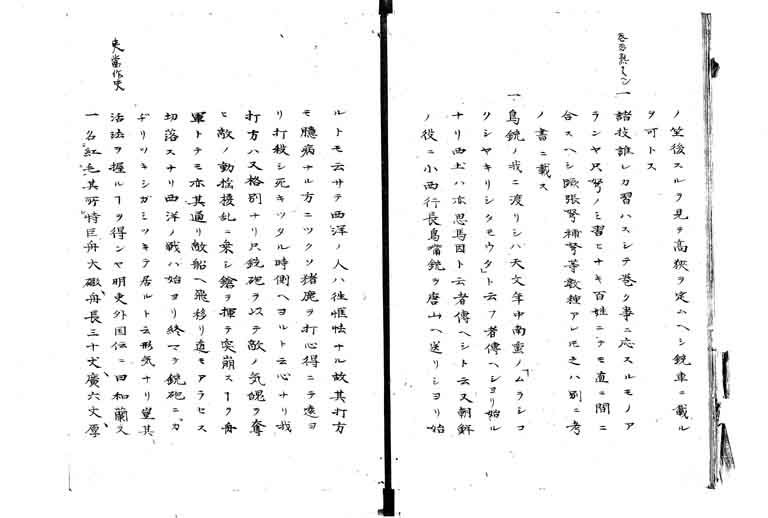 ノ竺後スルヲ見テ高狹ヲ定ムヘシ銃車ニ載ル
ヲ可トス
一諸技誰レカ習ハスシテ巻ク事ニ応スルモノア
ランヤ只弩ノミ習ヒナキ百姓ニテモ直ニ間ニ
合スヘシ蹶張弩補弩等数種アレ𪜈之ハ別ニ考
ノ書ニ載ス
一鳥銃ノ我ニ渡リシハ天文年中南蛮ノ「ムラシコ
クシヤキリシタモウタ」ト云フ者傳ヘシヨリ始ル
ナリ西土ハ亦思馬因ト云者傳ヘシト云又朝鮮
ノ役ニ小西行長鳥嘴銃ヲ唐山ヘ送リシヨリ始
ルトモ云サテ西洋ノ人ハ性恇怯ナル故其打方
モ臆病ナル方ニツクソ猪鹿ヲ打心得ニテ遠ヨ
リ打殺シ死キツタル時側ヘヨルト云心ナリ我
打方ハ又格別ナリ只銃砲ヲ以テ敵ノ気魄ヲ奪
ヒ敵ノ動揺擾乱ニ乗シ鎗ヲ揮テ突崩スヿク舟
軍トテモ亦其通リ敵船ヘ飛移リ遁モアラセス
切落スナリ西洋ノ戦ハ始ヨリ終マテ銃砲ニカ
チリツキシガミツキテ居ルト云形気ナリ豈其
活法ヲ握ルヿヲ得ンヤ明吏外国伝ニ曰和蘭又
一名紅毛其所恃巨舟大礟舟長三十丈廣六丈厚
吏當作史